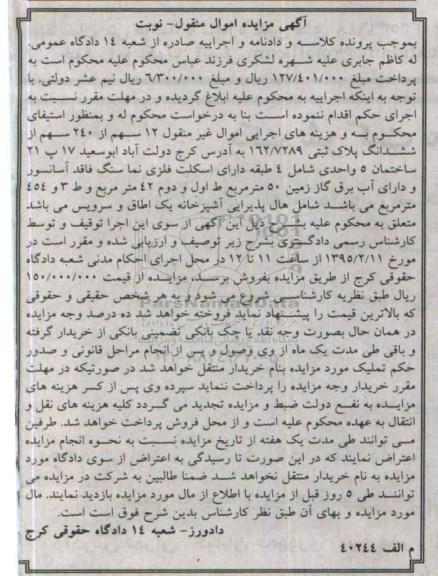 آگهی مزایده اموال منقول- نوبت
بموجب پرونده کلاسه و دادنامه و اجراییه صادره از شعبه ۱۴ دادگاه عمومی،
له کاظم جابری علیه شهره لشگری فرزند عباس محکوم علیه محکوم است به
پرداخت مبلغ ۱۲۷/۴۰۱/۰۰۰ ریال و مبلغ ۶/۳۰۰/۰۰۰ ریال نیم عشر دولتی. با
توجه به اینکه اجراییه به محکوم علیه ابلاغ گردیده و در مهلت مقرر نسبت به
اجرای حکم اقدام ننموده است بنا به درخواست محکوم له و بمنظور استیفای
محکوم به و هزینه های اجرایی اموال غیر منقول ۱۲ سهم از ۲۴۰ سهم از
ششدانگ پلاک ثبتی ۱۶۲/۷۲۸۹ به آدرس کرج دولت آباد ابوسعید ۱۷ پ ۲۱
ساختمان ۵ واحدی شامل ۴ طبقه دارای اسکلت فلزی نما سنگ فاقد آسانسور
و دارای آب برق گاز زمین ۵۰ مترمربع ط اول و دوم ۴۲ متر مربع و ط ۳ و ۴ ۴۵
مترمربع می باشد شامل هال پذیرایی آشپزخانه یک اطاق و سرویس می باشد
متعلق به محکوم علیه بشرح ذیل این آگهی از سوی این اجرا توقیف و توسط
کارشناس رسمی دادگستری بشرح زیر توصیف و ارزیابی شده و مقرر است در
مورخ ۱۳۹۵/۲/۱۱ از ساعت ۱۱ تا ۱۲ در محل اجرای احکام مدنی شعبه دادگاه
حقوقی کرج از طریق مزایده بفروش برسد. مزایده از قیمت ۱۵۰/۰۰۰/۰۰۰
ریال طبق نظریه کارشناسی شروع می شود و به هر شخص حقیقی و حقوقی
که بالاترین قیمت را پیشنهاد نماید فروخته خواهد شد ده درصد وجه مزایده
در همان حال بصورت وجه نقد یا چک بانکی تضمینی بانکی از خریدار گرفته
و باقی طی مدت یک ماه از وی وصول و پس از انجام مراحل قانونی و صدور
حکم تملیک مورد مزایده بنام خریدار منتقل خواهد شد در صورتیکه در مهلت
مقرر خریدار وجه مزایده را پرداخت ننماید سپرده وی پس از کسر هزینه های
مزایده به نفع دولت ضبط و مزایده تجدید می گردد کلیه هزینه های نقل و
انتقال به عهده محکوم علیه است و از محل فروش پرداخت خواهد شد. طرفین
می توانند طی مدت یک هفته از تاریخ مزایده نسبت به نحوه انجام مزایده
اعتراض نمایند که در این صورت تا رسیدگی به اعتراض از سوی دادگاه مورد
مزایده به نام خریدار منتقل نخواهد شد. ضمنا طالبین به شرکت در مزایده می
توانند طی ۵ روز قبل از مزایده با اطلاع از مال مورد مزایده بازدید نمایند. مال
مورد مزایده و بهای آن طبق نظر کارشناس بدین شرح فوق است است.
دادورز- شعبه ۱۴ دادگاه حقوقی کرج
م الف ۴۰۲۴۴